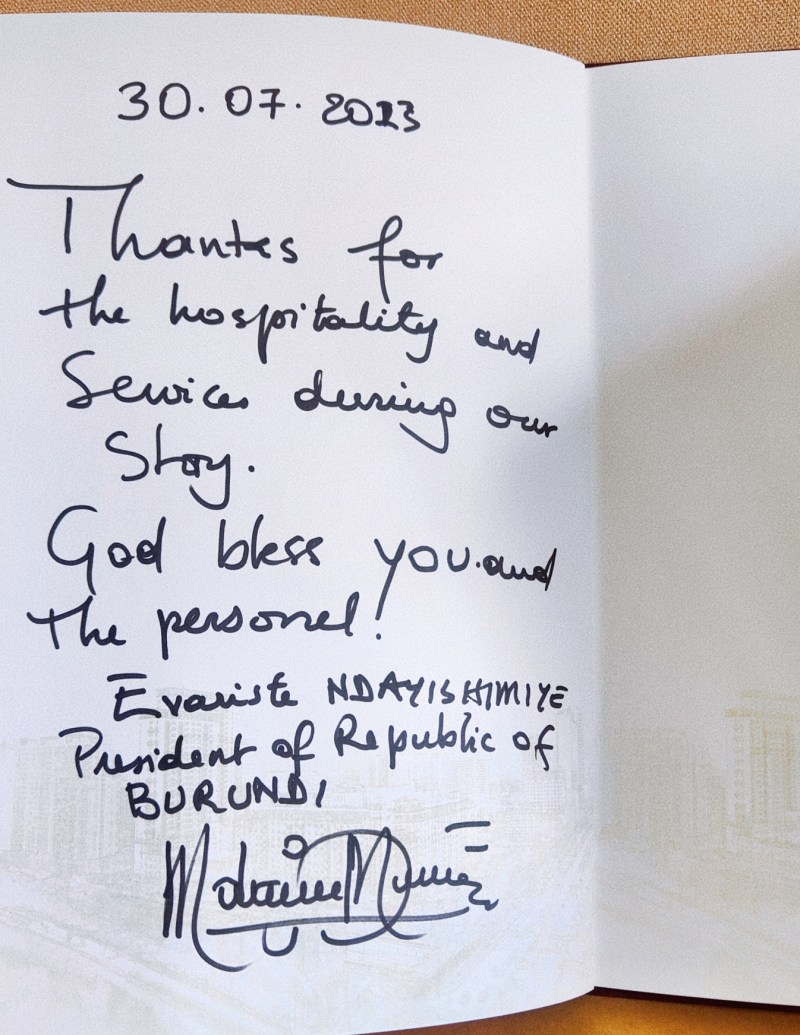 30.07.2023
Thanks for
the hospitality and
Services during our
Stay.
God bless you and
the personel!
Evariste NDAYISHIMIYE
President of Republic of
BURUNDI